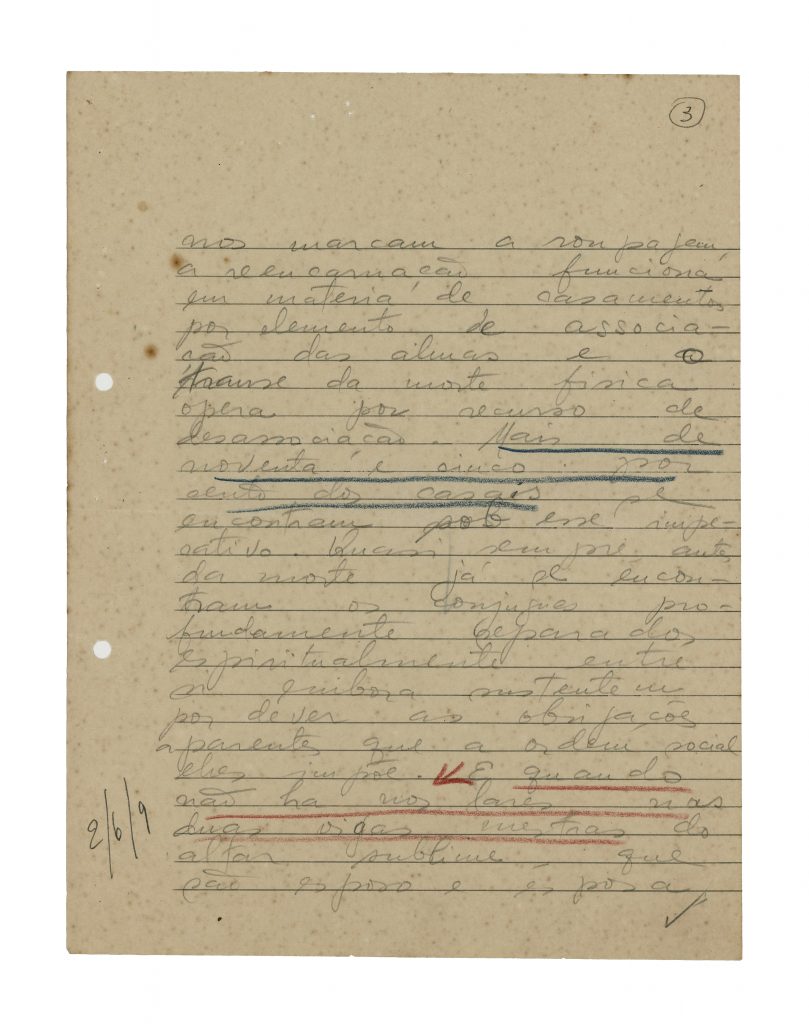 3
nos marcam a roupagem,
a reencarnação funciona
em materia de casamentos
por elemento de associa-
ção das almas e o
transe da morte fisica
opera por recurso de
desassociação. Mais de
noventa e cinco por
cento dos casais se
encontram sob esse impe-
rativo. Quasi sempre, antes
da morte já se encon-
tram os conjuges pro-
fundamente separados
espiritualmente entre
si embora sustentem
por dever as obrigações
aparentes que a ordem social
lhes impõe. E quando
não ha nos lares nas
duas vigas mestras do
altar sublime, que
são esposo e esposa,
2/6/9